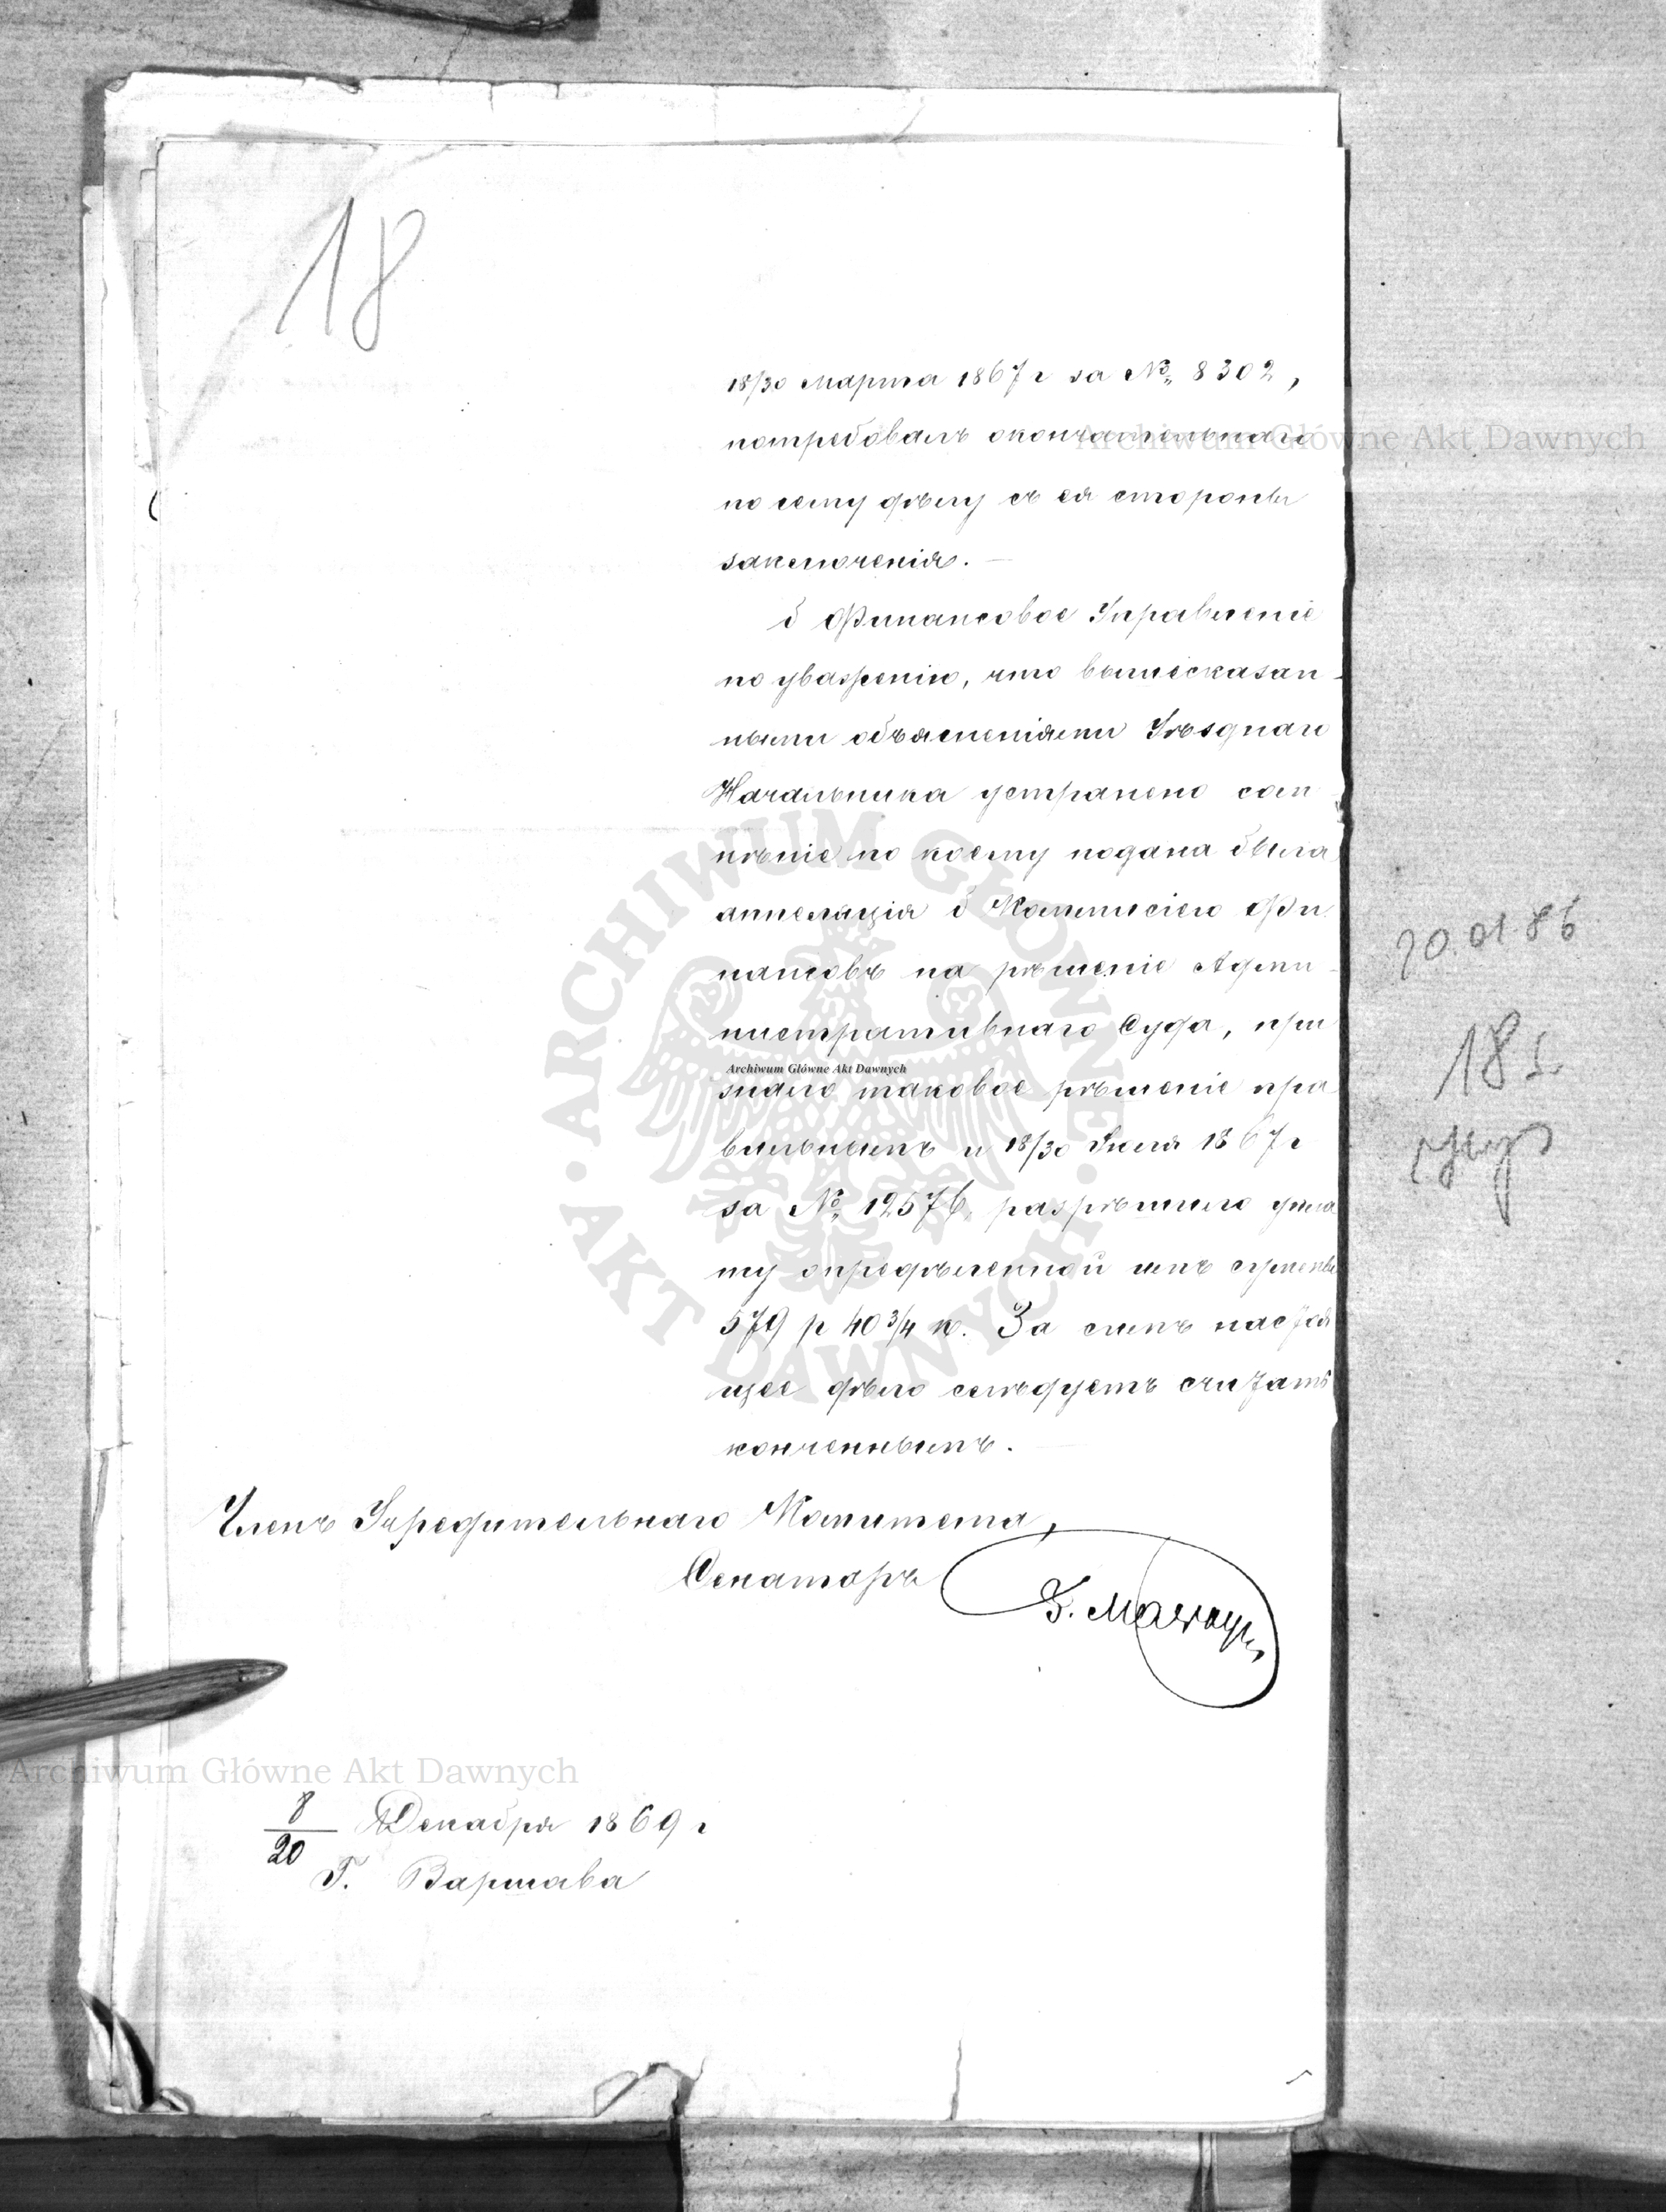 18
18/30 Марта 1867 г за № 8302,
потребовалъ окончательнаго
по сему дѣлу съ ея стороны
заключенія. —
б Финансовое Управленіе
по уваженію, что вышесказан-
ными объясненіями Уѣзднаго
Начальника устранено сом
нѣніе по коему подана была
аппеляція б Коммисіею Фи
нансовъ на рѣшеніе Адми-
нистративнаго Суда, при
знало таковое рѣшеніе пра
вильнымъ и 18/30 Іюля 1867 г
за № 12576, разрѣшило упла
ту опредѣленной имъ суммы
579 р 40 3/4 к. За симъ настоя
щее дѣло слѣдуетъ считать
конченнымъ.
Членъ Учредительнаго Комитета,
Сенаторъ
8/20 Декабря 1869 г
Г. Варшава
20.01.86
18
Archiwum Główne Akt Dawnych
Archiwum Główne Akt Dawnych
Archiwum Główne Akt Dawnych
ARCHIWUM GŁÓWNE AKT DAWNYCH